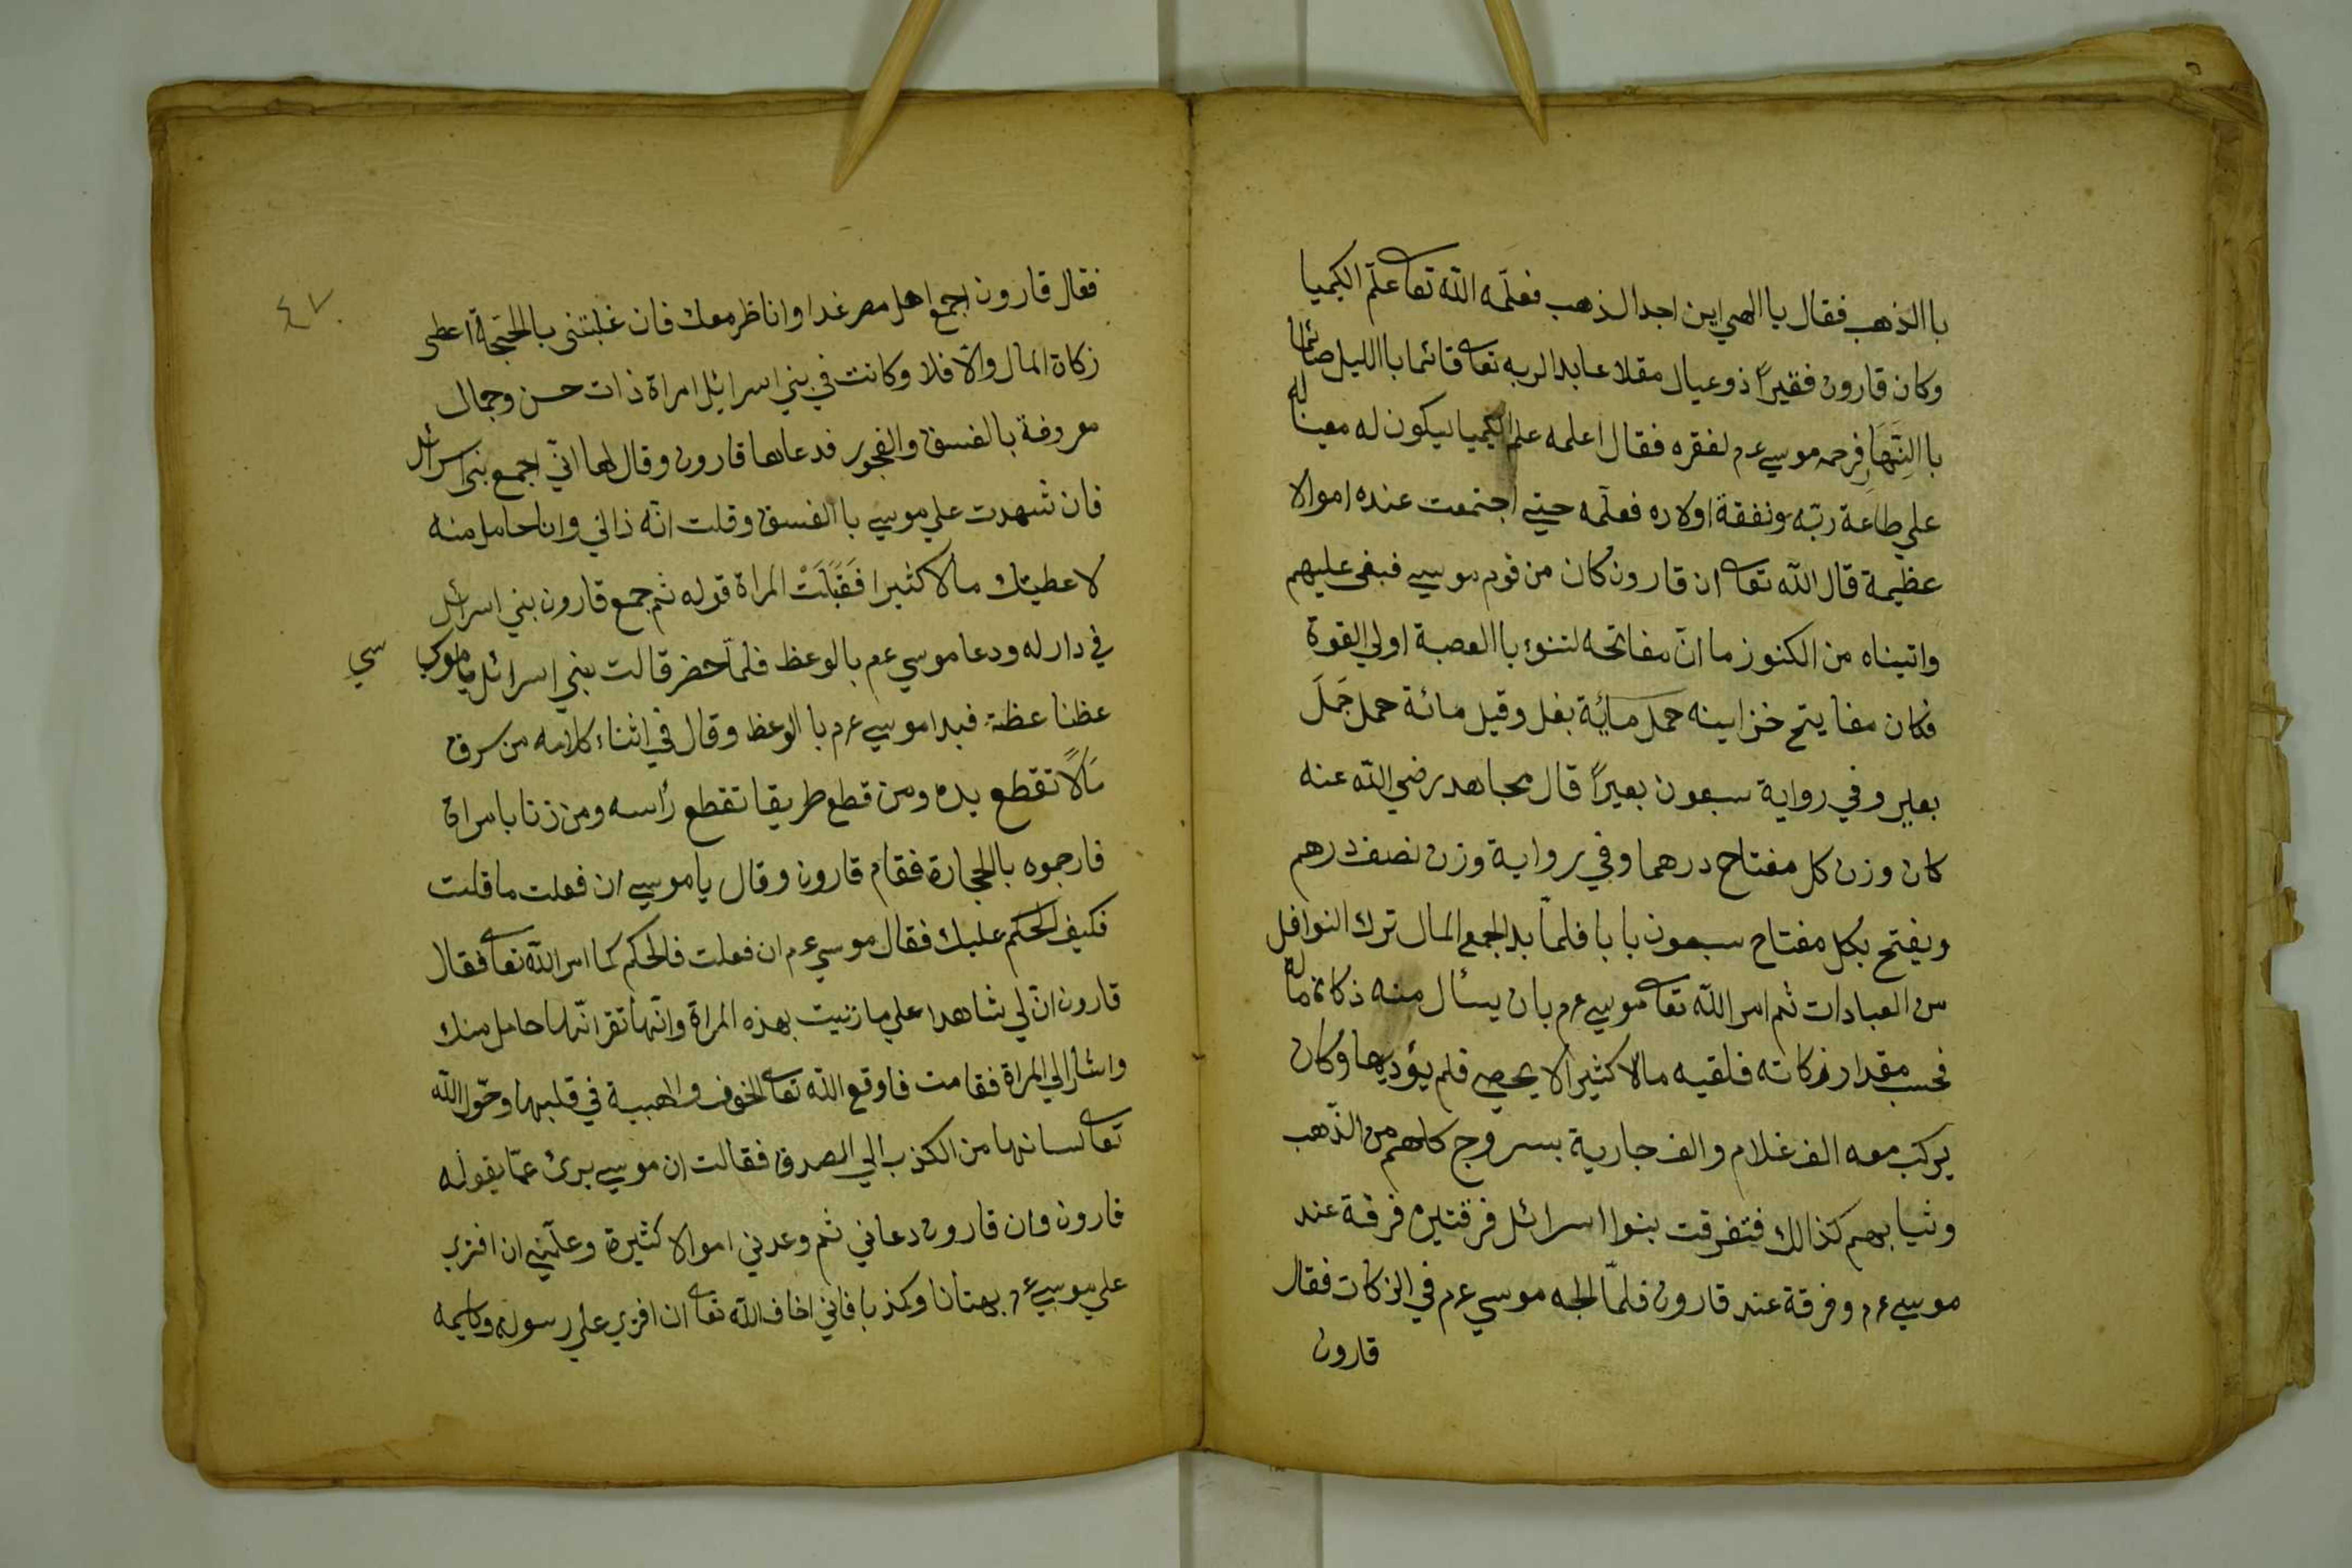 باالذهب فقال ياالهي اين اجد الذهب فعلّمه اللّه تعا علّم الكيميا
وكان قارون فقيراً ذو عيال مقلا عابدا لربه تعا قائما باالليل صائما
باالنِّهَارِ فرحمه موسي ع م لفقره فقال اعلمه علم الكيميا ليكون له معينا له
علي طاعة ربّه ونفقة اولاده فعلّمه حتي اجتمعت عنده اموالا
عظيمة قال اللّه تعا ان قارون كان من قوم موسي فبغي عليهم
واتيناه من الكنوز ما انّ مفاتحه لتنوء باالعصبة اولي القوة
فكان مفاتيح خزاينه حمل مائة بغل وقيل مائة حمل جَمَلَ
بعير وفي رواية سبعون بعيراً قال مجاهد رضي اللّه عنه
كان وزن كل مفتاح درهما وفي رواية وزن نصف درهم
ويفتح بكل مفتاح سبعون بابا فلمّا بدا لجمع المال ترك النوافل
من العبادات ثم امر اللّه تعا موسي ع م بان يسأل منه ذكاة ماله
فحسب مقدار زكاته فلقيه مالا كثيرا لا يحصي فلم يؤديها وكان
يركب معه الف غلام والف جارية بسروج كلهم من الذّهب
وثيابهم كذالك فتفرقت بنوا اسرائل فرقتين فرقة عند
موسي ع م وفرقة عند قارون فلمّا الجه موسي ع م في الزكات فقال
قارون
٤٧
فقال قارون اجمع اهل مصر غدا واناظر معك فان غلبتني باالحجّة اعطي
زكاة المال والّا فلا وكانت في بني اسرايل امراة ذات حسن وجمال
معروفة بالفسق والفجور فدعاها قارون وقال لها انّي اجمع بني اسرائل
فان شهدت علي موسي باالفسق وقلت انّه ذاني وانا حامل منه
لاعطيتك مالا كثيرا فَقَبَلَتْ المراة قوله ثم جمع قارون بني اسرائل
في دار له ودعا موسي ع م بالوعظ فلمّا حضر قالت بني اسرائل يا موسي
سي
عظنا عظة فبدا موسي ع م باالوعظ وقال في اثناء كلامه من سرق
مَالًا تقطع يده ومن قطع طريقا تقطع رأسه ومن زنا بامراة
فارجموه باالحجارة فقام قارون وقال يا موسي ان فعلت ما قلت
فكيف الحكم عليك فقال موسي ع م ان فعلت فالحكم كما امر اللّه تعا فقال
قارون انّ لي شاهدا علي ما زنيت بهذه المراة وانّها تقر انّها حامل منك
واشار الي المراة فقامت فاوقع اللّه تعا الخوف والهيبة في قلبها وحوّل اللّه
تعا لسانها من الكذب الي الصدق فقالت ان موسي برئ عمّا يقوله
قارون وان قارون دعاني ثم وعدني اموالا كثيرة وعلّمني ان افتري
علي موسي ع م بهتانا وكذبا فاني اخاف اللّه تعا ان افتري علي رسوله وكليمه